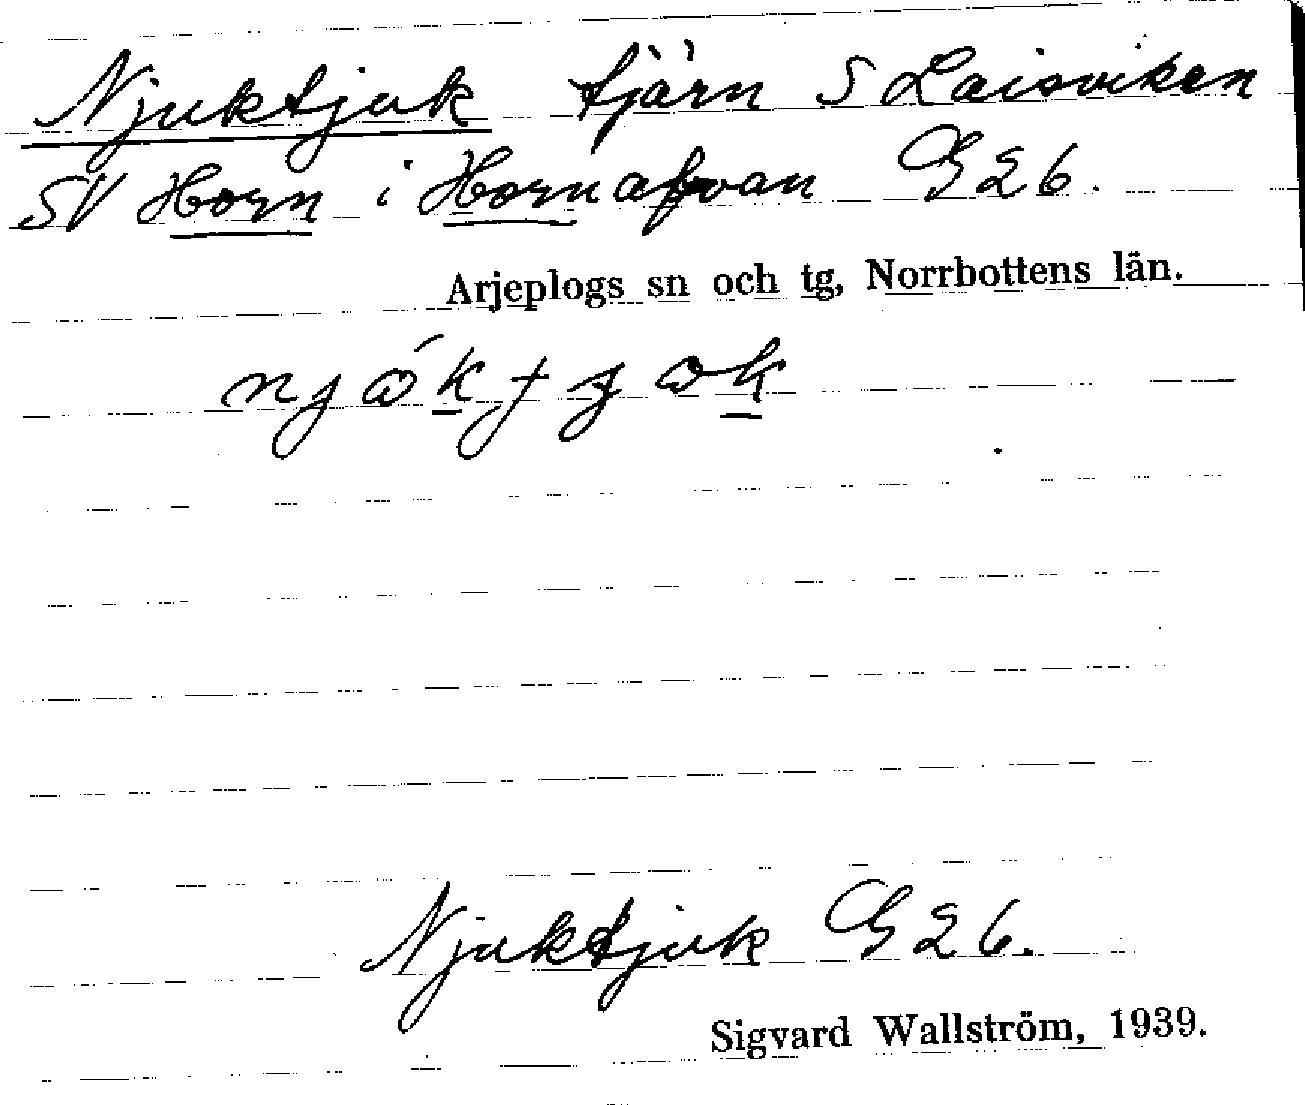 Njuktjuk tjärn S Laisviken
SV Horn i Hornafvan G26.
Arjeplogs sn och tg, Norrbottens län.
Njuktjuk G26.
Sigvard Wallström, 1939.